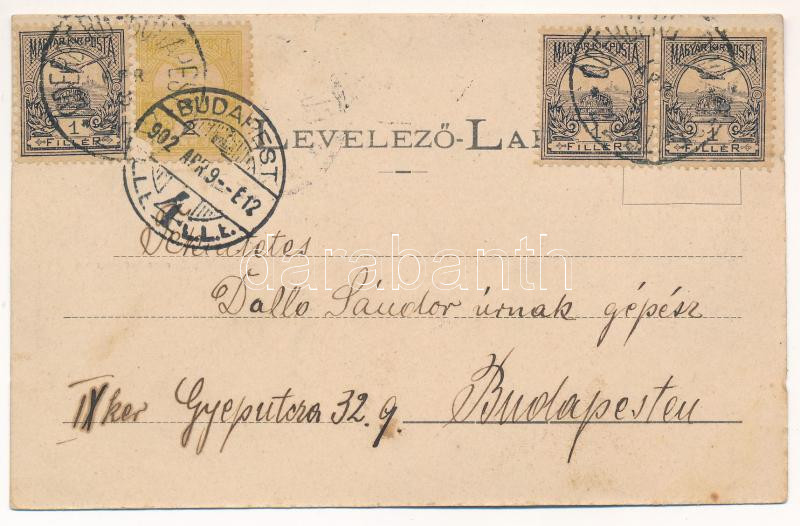 MAGYAR KIR. POSTA
1
FILLÉR
2
MAGYAR KIR. POSTA
1
FILLÉR
MAGYAR KIR. POSTA
1
FILLÉR
BUDAPEST
902 APR 9 - E12
4
LEVELEZŐ-LAP
darabanth
Tekintetes
Dallo Sándor úrnak gépész
Budapesten
IX ker Gyeputcza 32.